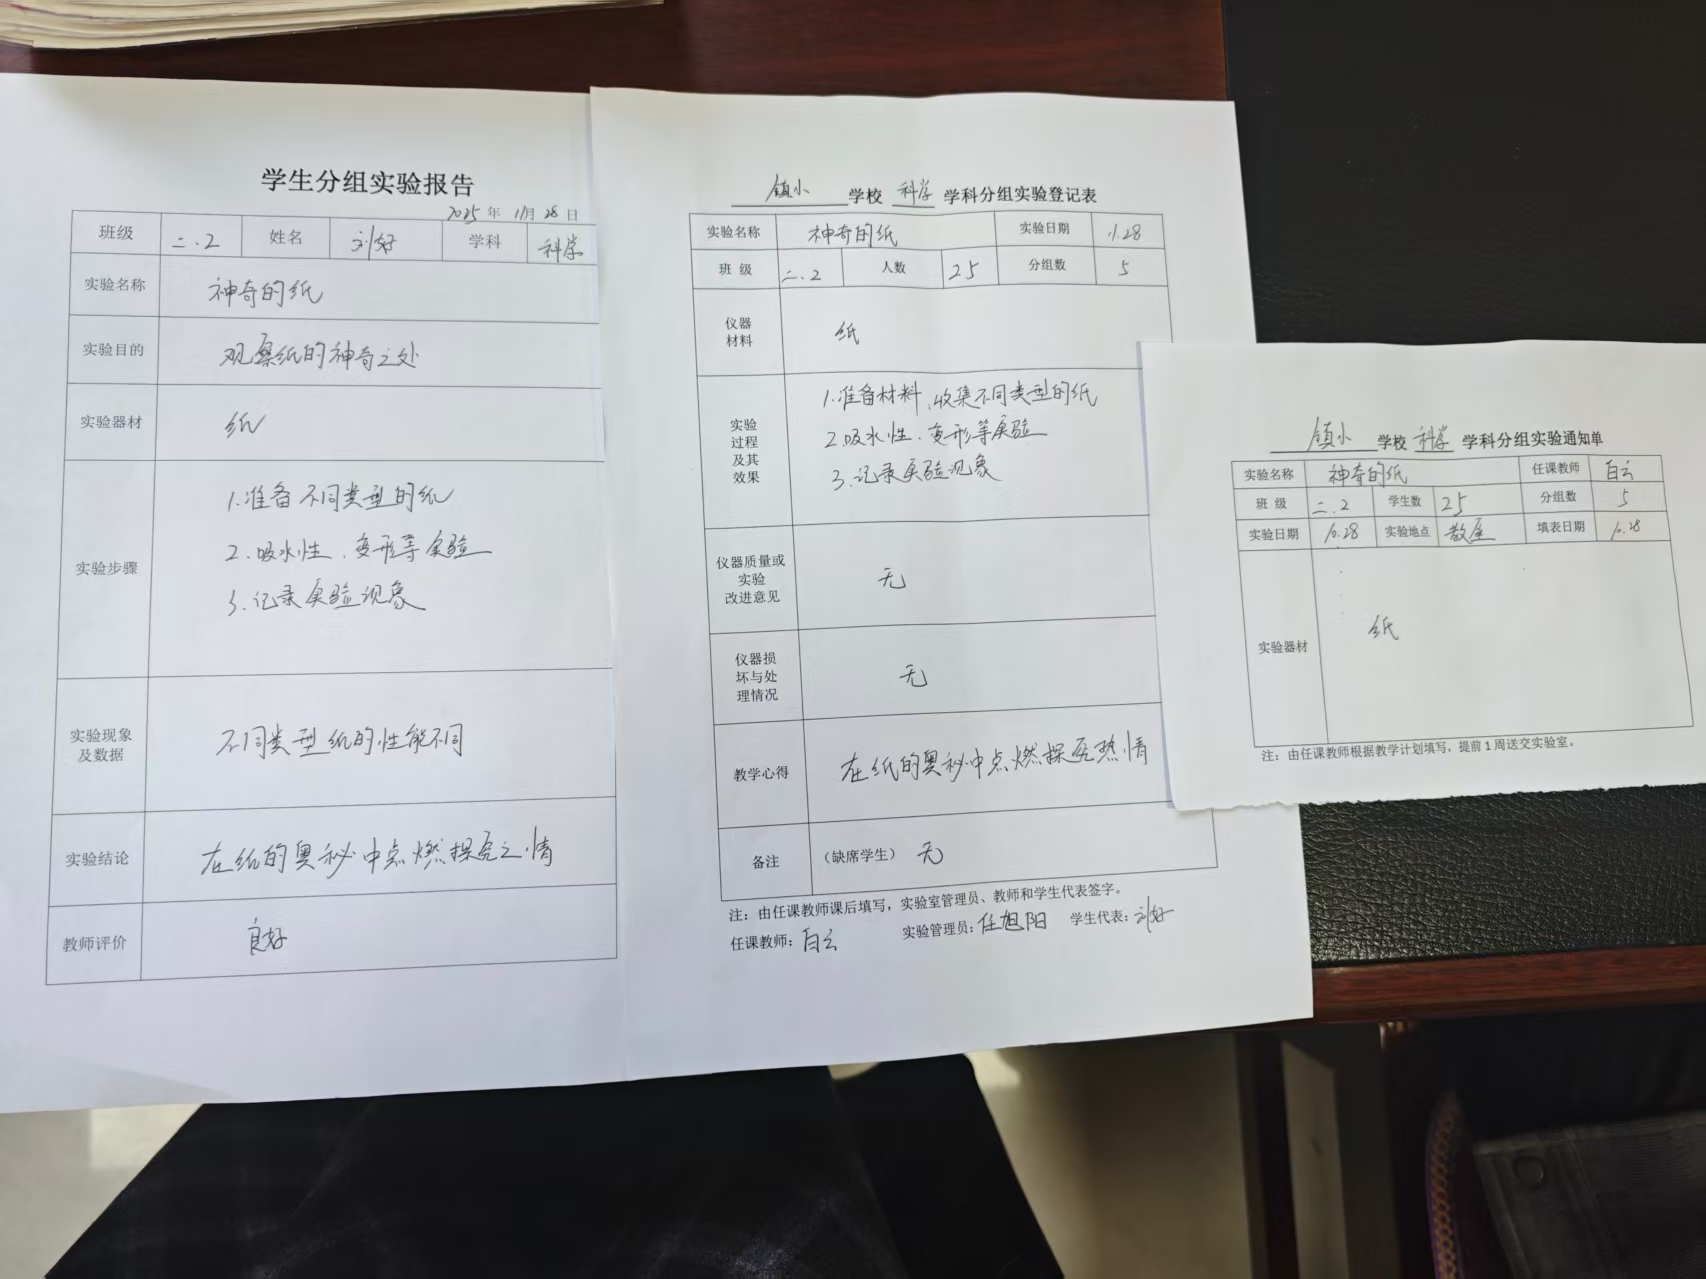 学生分组实验报告
2025 年 11月 28 日
班级 二.2 姓名 刘好 学科 科学
实验名称 神奇的纸
实验目的 观察纸的神奇之处
实验器材 纸
实验步骤
1.准备不同类型的纸
2.吸水性、变形等实验
3.记录实验现象
实验现象及数据 不同类型纸的性能不同
实验结论 在纸的奥秘中点燃探究之情
教师评价 良好
镇小 学校 科学 学科分组实验登记表
实验名称 神奇的纸 实验日期 11.28
班 级 二.2 人数 25 分组数 5
仪器材料 纸
实验过程及其效果
1.准备材料,收集不同类型的纸
2.吸水性、变形等实验
3.记录实验现象
仪器质量或实验改进意见 无
仪器损坏与处理情况 无
教学心得 在纸的奥秘中点燃探究热情
备注 (缺席学生) 无
注:由任课教师课后填写,实验室管理员、教师和学生代表签字。
任课教师:白云 实验管理员:任旭阳 学生代表:刘好
镇小 学校 科学 学科分组实验通知单
实验名称 神奇的纸 任课教师 白云
班 级 二.2 学生数 25 分组数 5
实验日期 实验地点 教室 填表日期
实验器材 纸
注:由任课教师根据教学计划填写,提前1周送交实验室。